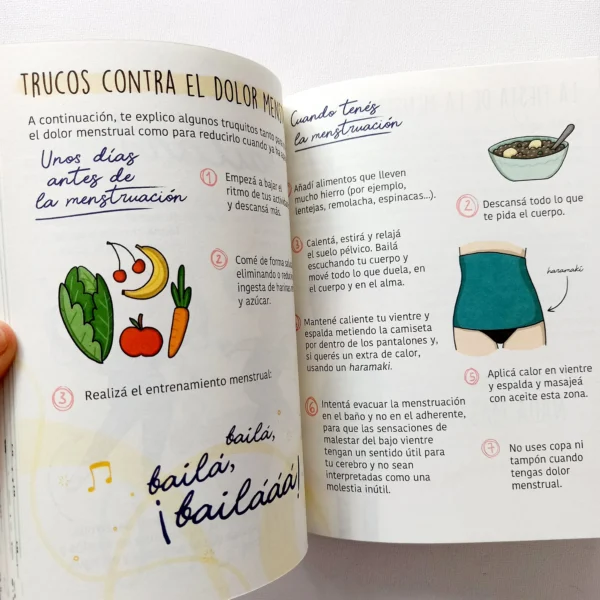 TRUCOS CONTRA EL DOLOR
A continuación, te explico algunos truquitos tanto
el dolor menstrual como para reducirlo cuando ya
Unos días
antes de
la menstruación
1 Empezá a bajar el
ritmo de tus
y descansá más.
2 Comé de forma
eliminando o
ingesta de
y azúcar.
3 Realizá el entrenamiento menstrual:
bailá,
bailá,
¡bailááá!
Cuando tenés
la menstruación
Añadí alimentos que lleven
mucho hierro (por ejemplo,
lentejas, remolacha, espinacas...).
2 Descansá todo lo que
te pida el cuerpo.
3 Calentá, estirá y relajá
el suelo pélvico. Bailá
escuchando tu cuerpo y
mové todo lo que duela, en
el cuerpo y en el alma.
haramaki
Mantené caliente tu vientre y
espalda metiendo la camiseta
por dentro de los pantalones y,
si querés un extra de calor,
usando un haramaki.
5 Aplicá calor en vientre
y espalda y masajeá
con aceite esta zona.
6 Intentá evacuar la menstruación
en el baño y no en el adherente,
para que las sensaciones de
malestar del bajo vientre
tengan un sentido útil para
tu cerebro y no sean
interpretadas como una
molestia inútil.
7 No uses copa ni
tampón cuando
tengas dolor
menstrual.